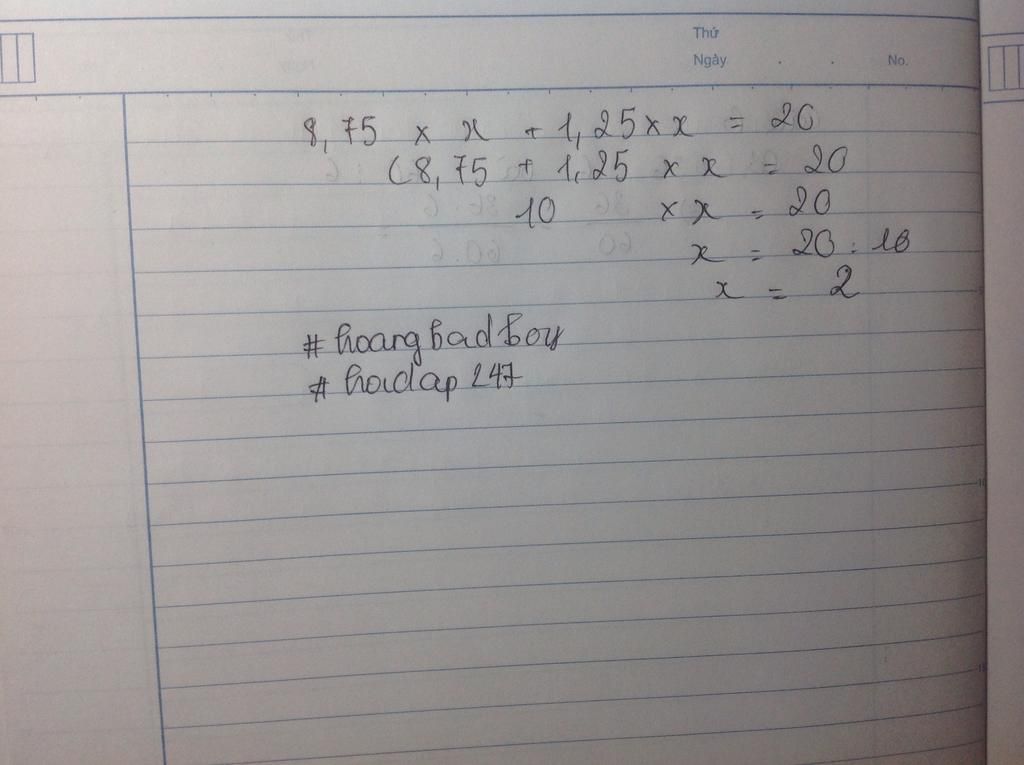 Thứ
Ngày . . No.
8,75 x x + 1,25 x x = 20
(8,75 + 1,25 x x = 20
10 x x = 20
x = 20 : 10
x = 2
# hoangbadboy
# hoidap247